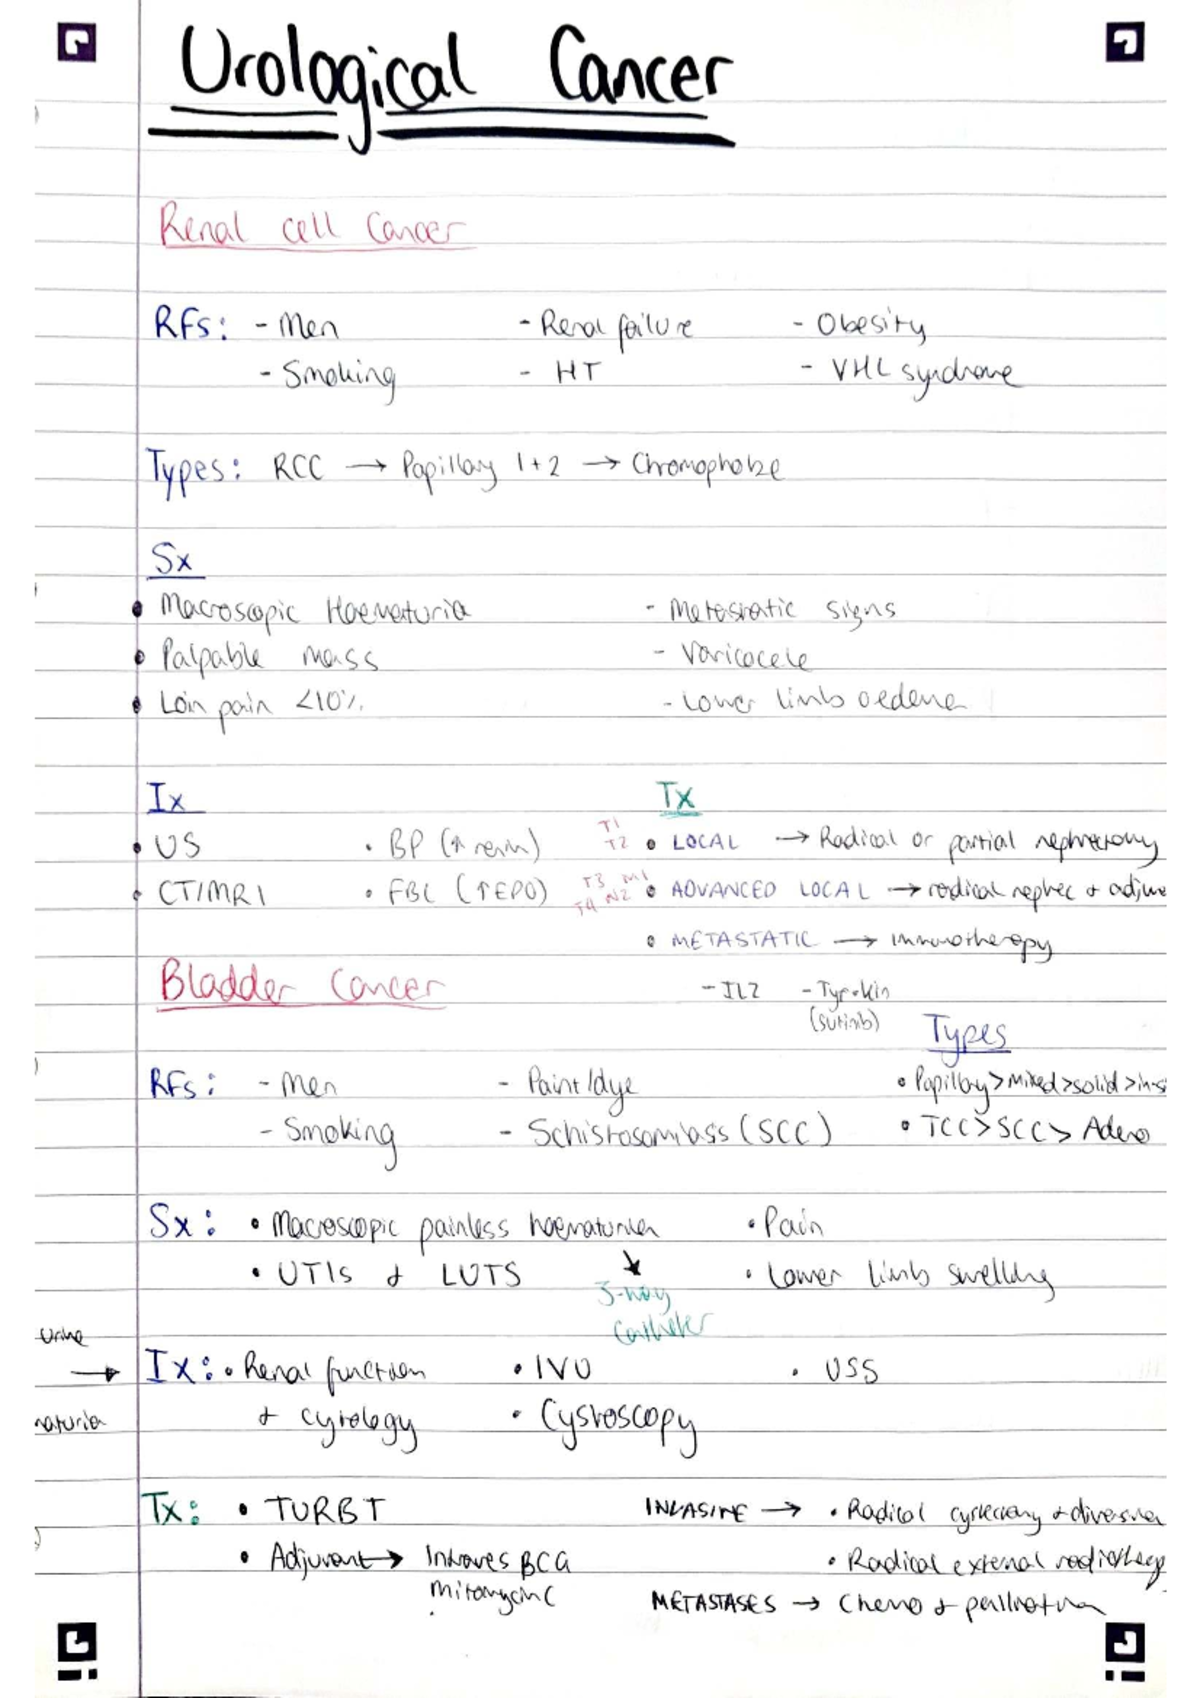 Urological Cancer
Renal cell Cancer
RFs: - Men - Renal failure - Obesity
- Smoking - HT - VHL syndrome
Types: RCC → Papillary 1+2 → Chromophobe
Sx
• Macroscopic Haematuria - Metastatic signs
• Palpable mass - Varicocele
• Loin pain <10% - Lower limb oedema
Ix Tx
• US • BP (↑ renin) T1 T2 • LOCAL → Radical or partial nephrectomy
• CT/MRI • FBC (↑EPO) T3 M1 T4 N2 • ADVANCED LOCAL → radical nephrec + adjuve
• METASTATIC → immunotherapy
Bladder Cancer - IL2 - Tyr-kin
(sutinib) Types
RFs: - Men - Paint/dye • Papillary > mixed > solid > in-si
- Smoking - Schistosomiasis (SCC) • TCC > SCC > Adeno
Sx: • Macroscopic painless haematuria • Pain
• UTIs & LUTS • Lower limb swelling
3-way
Catheter
urine
→ Ix: • Renal function • IVU • USS
naturia & cytology • Cystoscopy
Tx: • TURBT INVASIVE → • Radical cystectomy + diversion
• Adjuvant → Intraves BCG • Radical external radiotherap
mitomycin C METASTASES → Chemo & palliation